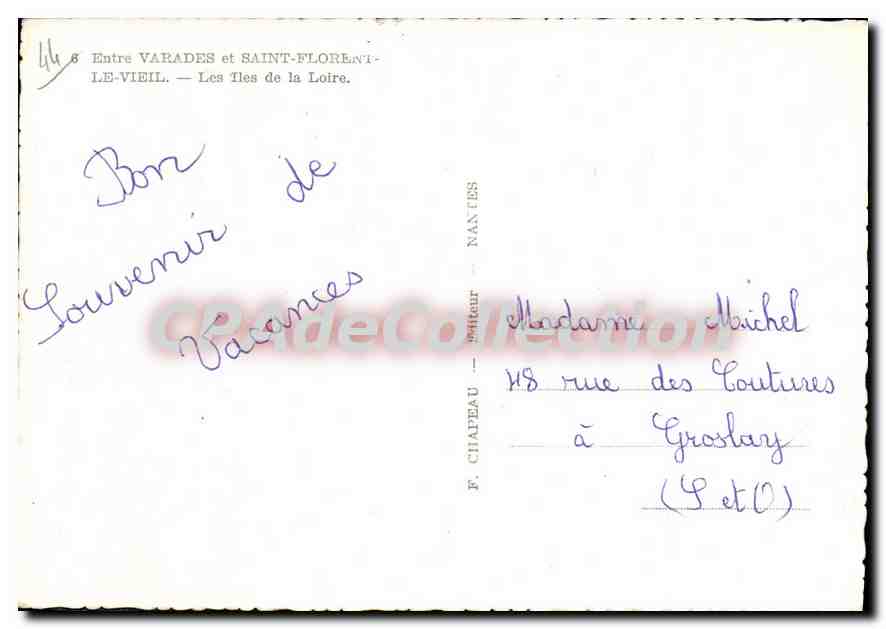 44
6 Entre VARADES et SAINT-FLORENT-
LE-VIEIL. — Les Iles de la Loire.
Bon
Souvenir de
Vacances
F. CHAPEAU — Editeur — NANTES
Madame Michel
48 rue des Coutures
à Groslay
(S et O)
CPAdeCollection